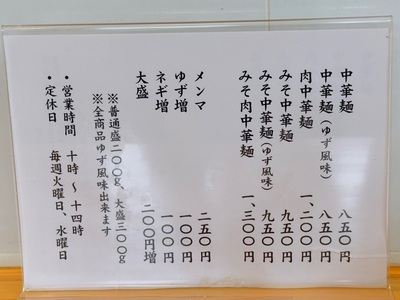 中華麺 八五〇円
中華麺（ゆず風味） 八五〇円
肉中華麺 一、二〇〇円
みそ中華麺 九五〇円
みそ中華麺（ゆず風味） 九五〇円
みそ肉中華麺 一、三〇〇円
メンマ 二五〇円
ゆず増 一〇〇円
ネギ増 一〇〇円
大盛 二〇〇円増
※普通盛二〇〇g、大盛三〇〇g
※全商品ゆず風味出来ます
・営業時間 十時～十四時
・定休日 毎週火曜日、水曜日